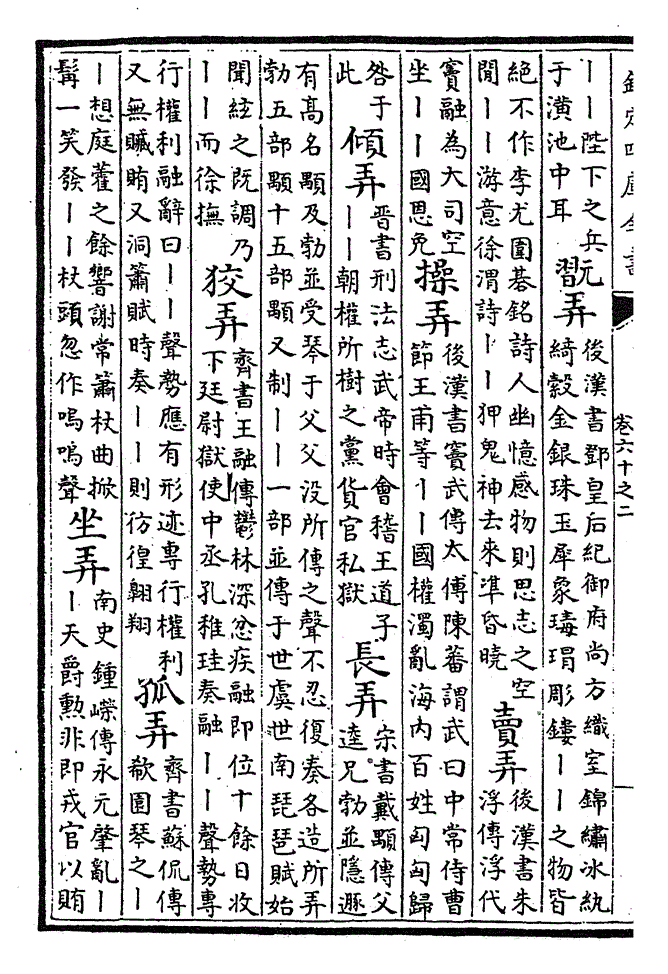 欽定四庫全書 卷六十之二
｜｜陛下之兵于潢池中耳 翫弄 後漢書鄧皇后紀御府尚方織室錦繡冰紈綺縠金銀珠玉犀象瑇瑁彫鏤｜｜之物皆
絕不作李尤圍碁銘詩人幽憶感物則思志之空閒｜｜游意徐渭詩｜｜狎鬼神去來凖昏曉 賣弄 後漢書朱浮傳浮代
竇融為大司空坐｜｜國恩免 操弄 後漢書竇武傳太傅陳蕃謂武曰中常侍曹節王甫等｜｜國權濁亂海内百姓匈匈歸
咎于此 傾弄 晉書刑法志武帝時會稽王道子｜｜朝權所樹之黨貨官私獄 長弄 宗書戴顒傳父逵兄勃並隱遯
有高名顒及勃並受琴于父父没所傳之聲不忍復奏各造所弄勃五部顒十五部顒又制｜｜一部並傳于世虞世南琵琶賦始
聞絃之既調乃｜｜而徐撫 狡弄 齊書王融傳鬱林深忿疾融即位十餘日收下廷尉獄使中丞孔稚珪奏融｜｜聲勢專
行權利融辭曰｜｜聲勢應有形迹專行權利又無贓賄又洞簫賦時奏｜｜則彷徨翺翔 狐弄 齊書蘇侃傳欷園琴之｜
｜想庭藿之餘響謝常簫杖曲掀髯一笑發｜｜杖頭忽作嗚嗚聲 坐弄 南史鍾嶸傳永元肇亂｜｜天爵勲非即戎官以賄